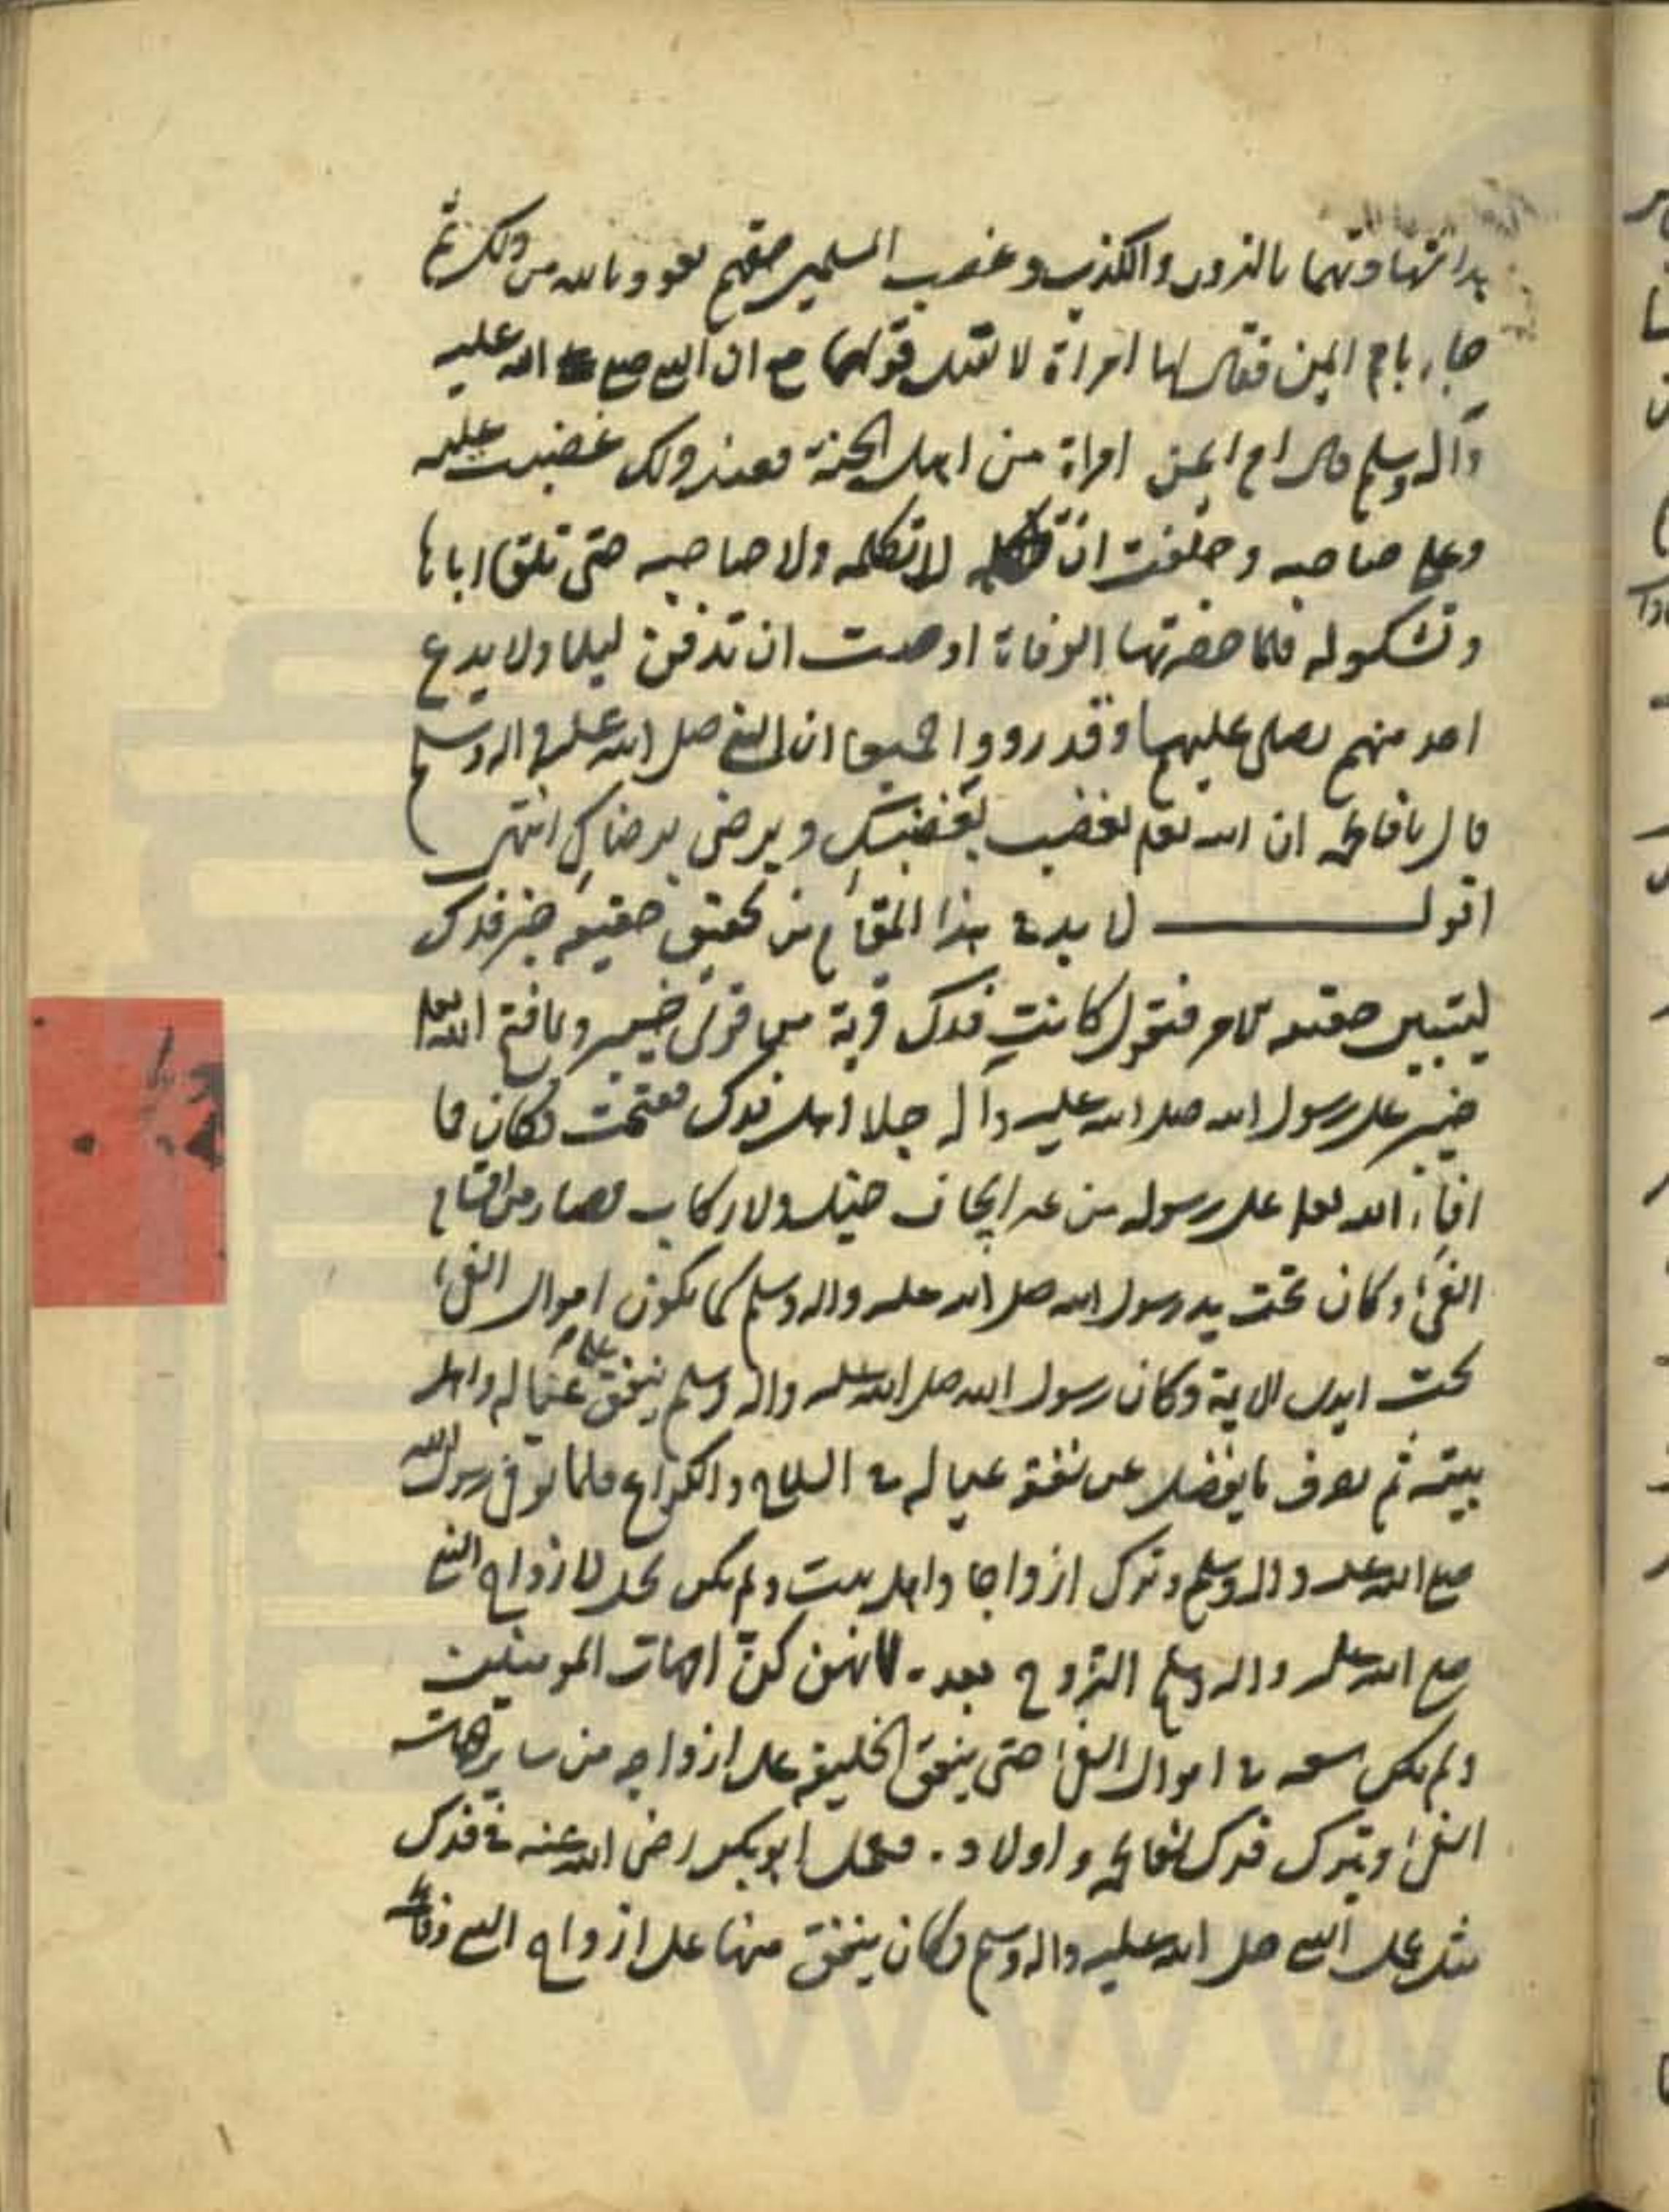 بدا شهادتهما بالزور والكذب وغصب المسلمين حقهم نعوذ بالله من ذلك ثم
جاء بام ايمن فقال لها امراة لا تقبل قولها مع ان النبي صلى الله عليه
وآله وسلم قال ام ايمن امراة من اهل الجنة فعند ذلك غضبت عليه
وعلى صاحبه وحلفت ان لا تكلمه ولا صاحبه حتى تلقى اباها
وتشكو له فلما حضرتها الوفاة اوصت ان تدفن ليلا ولا يدع
احد منهم يصلي عليها وقد رووا جميعا ان النبي صلى الله عليه واله وسلم
قال يا فاطمة ان الله تعلى يغضب لغضبك ويرضى لرضاك انتهى
اقول لا بد في هذا المقام من تحقيق حقيقة خبر فدك
ليتبين حقيقة الامر فنقول كانت فدك قرية من قرى خيبر ولما فتح الله تعلى
خيبر على رسول الله صلى الله عليه وآله جلا اهل فدك ففتحت فكان مما
افاء الله تعلى على رسوله من غير ايجاف خيل ولا ركاب فصار من اقسام
الفيء وكان تحت يد رسول الله صلى الله عليه واله وسلم كما يكون اموال الفيء
تحت ايدى الاية وكان رسول الله صلى الله عليه واله وسلم ينفق على عياله واهل
بيته ثم يصرف ما يفضل عن نفقة عياله في السلاح والكراع فلما توفى رسول الله
صلى الله عليه واله وسلم وترك ازواجا واهل بيت ولم يكن يحل لازواج النبي
صلى الله عليه واله وسلم التزوج بعده لانهن كن امهات المومنين
ولم يكن سعة في اموال الفيء حتى ينفق الخليفة على ازواجه من ساير جهات
الفيء ويترك فدك لفاطمة واولاده فعمل ابو بكر رضى الله عنه في فدك
مثل عمل النبي صلى الله عليه واله وسلم وكان ينفق منها على ازواج النبي وفاطمة